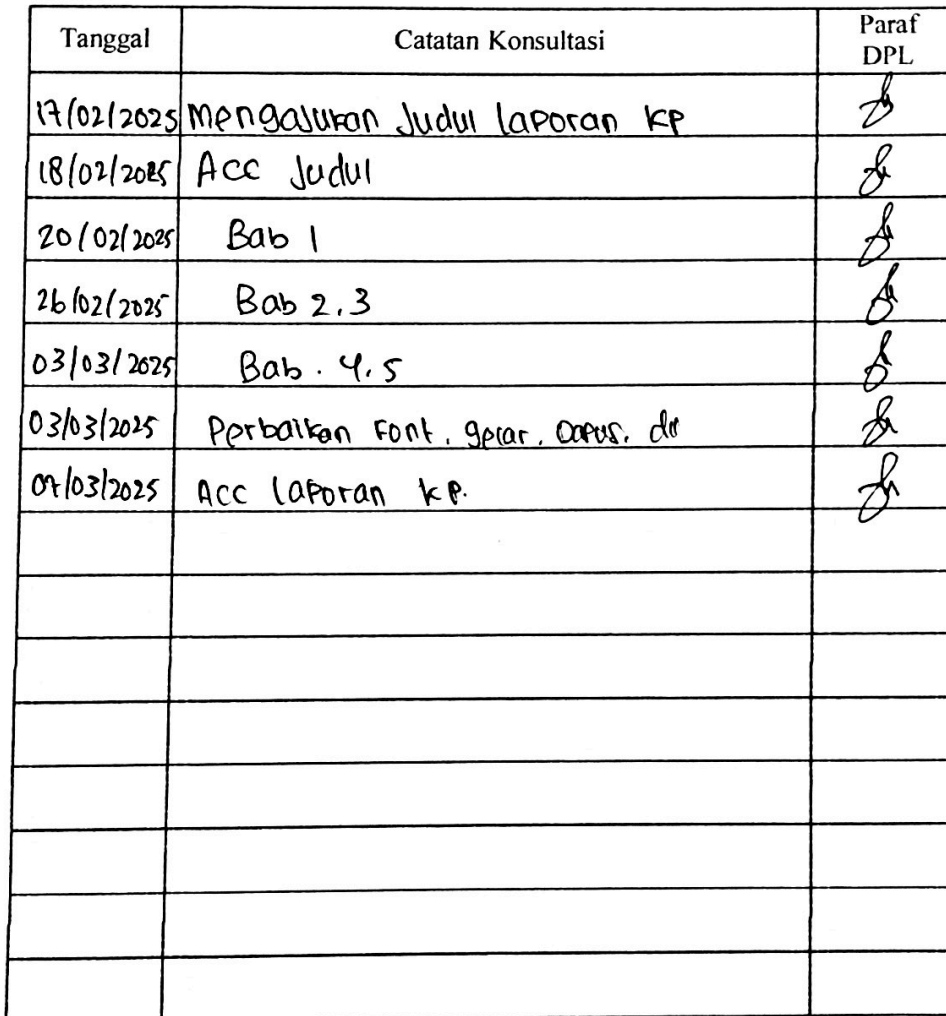 Tanggal Catatan Konsultasi Paraf DPL
17/02/2025 Mengajukan Judul laporan KP
18/02/2025 Acc Judul
20/02/2025 Bab 1
26/02/2025 Bab 2.3
03/03/2025 Bab. 4.5
03/03/2025 Perbaikan Font. gelar. Dapus. dll
07/03/2025 Acc laporan kp.